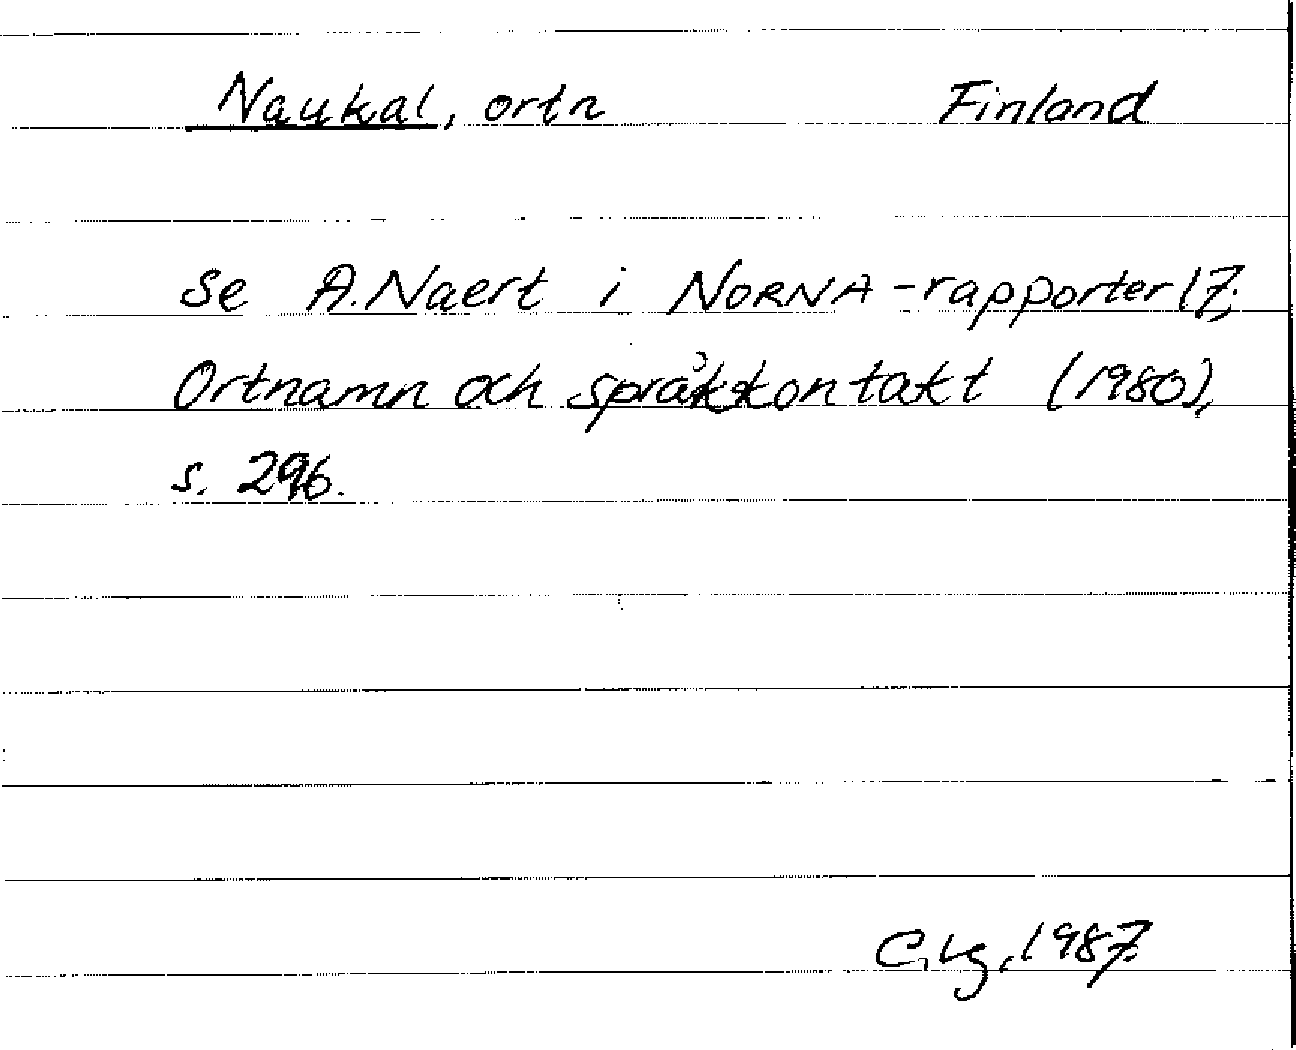 Naukal, ortn Finland
Se A. Naert i NORNA-rapporter 17;
Ortnamn och språkkontakt (1980),
s. 296.
1987.